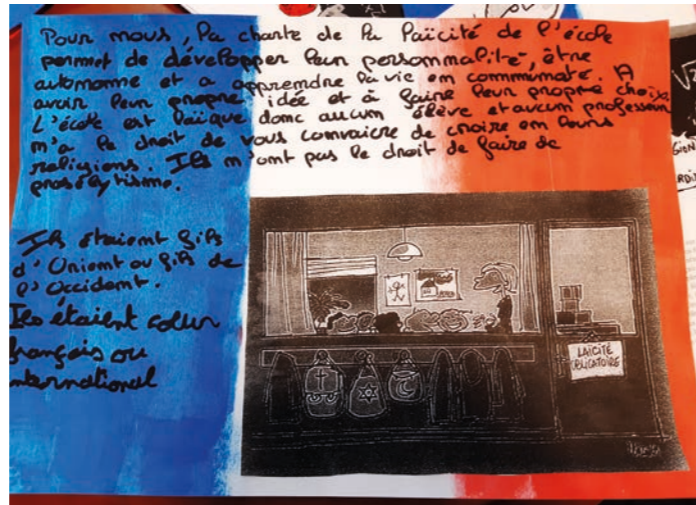 Pour nous, la charte de la laïcité de l'école
permet de développer leur personnalité, être
autonome et a apprendre la vie en communauté. A
avoir leur propre idée et à faire leur propre choix
L'école est laïque donc aucun élève et aucun professeur
n'a le droit de vous convaicre de croire en leurs
religions. Ils n'ont pas le droit de faire de
prosélytisme.
Ils étaient fils
d'Orient ou fils de
l'Occident.
Ils étaient cœur
français ou
international
LAÏCITÉ
OBLIGATOIRE